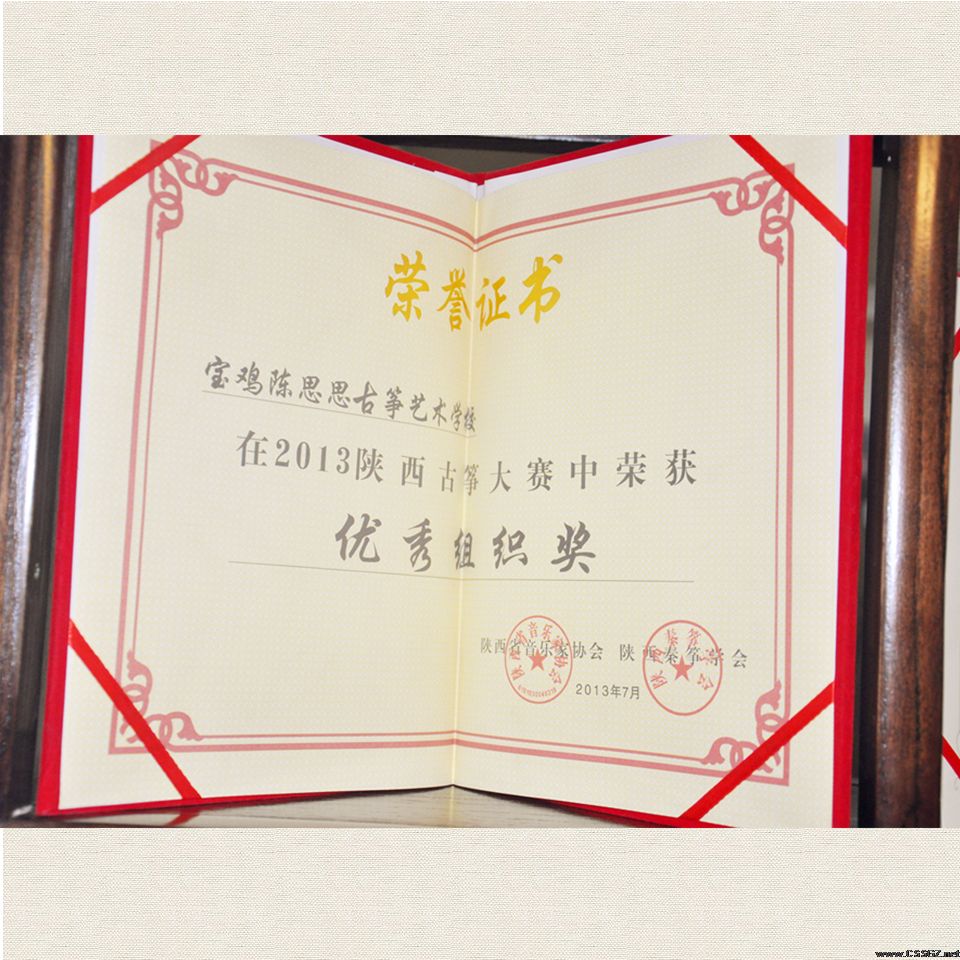 荣誉证书
宝鸡陈思思古筝艺术学校
在2013陕西古筝大赛中荣获
优秀组织奖
陕西省音乐家协会 陕西秦筝学会
2013年7月